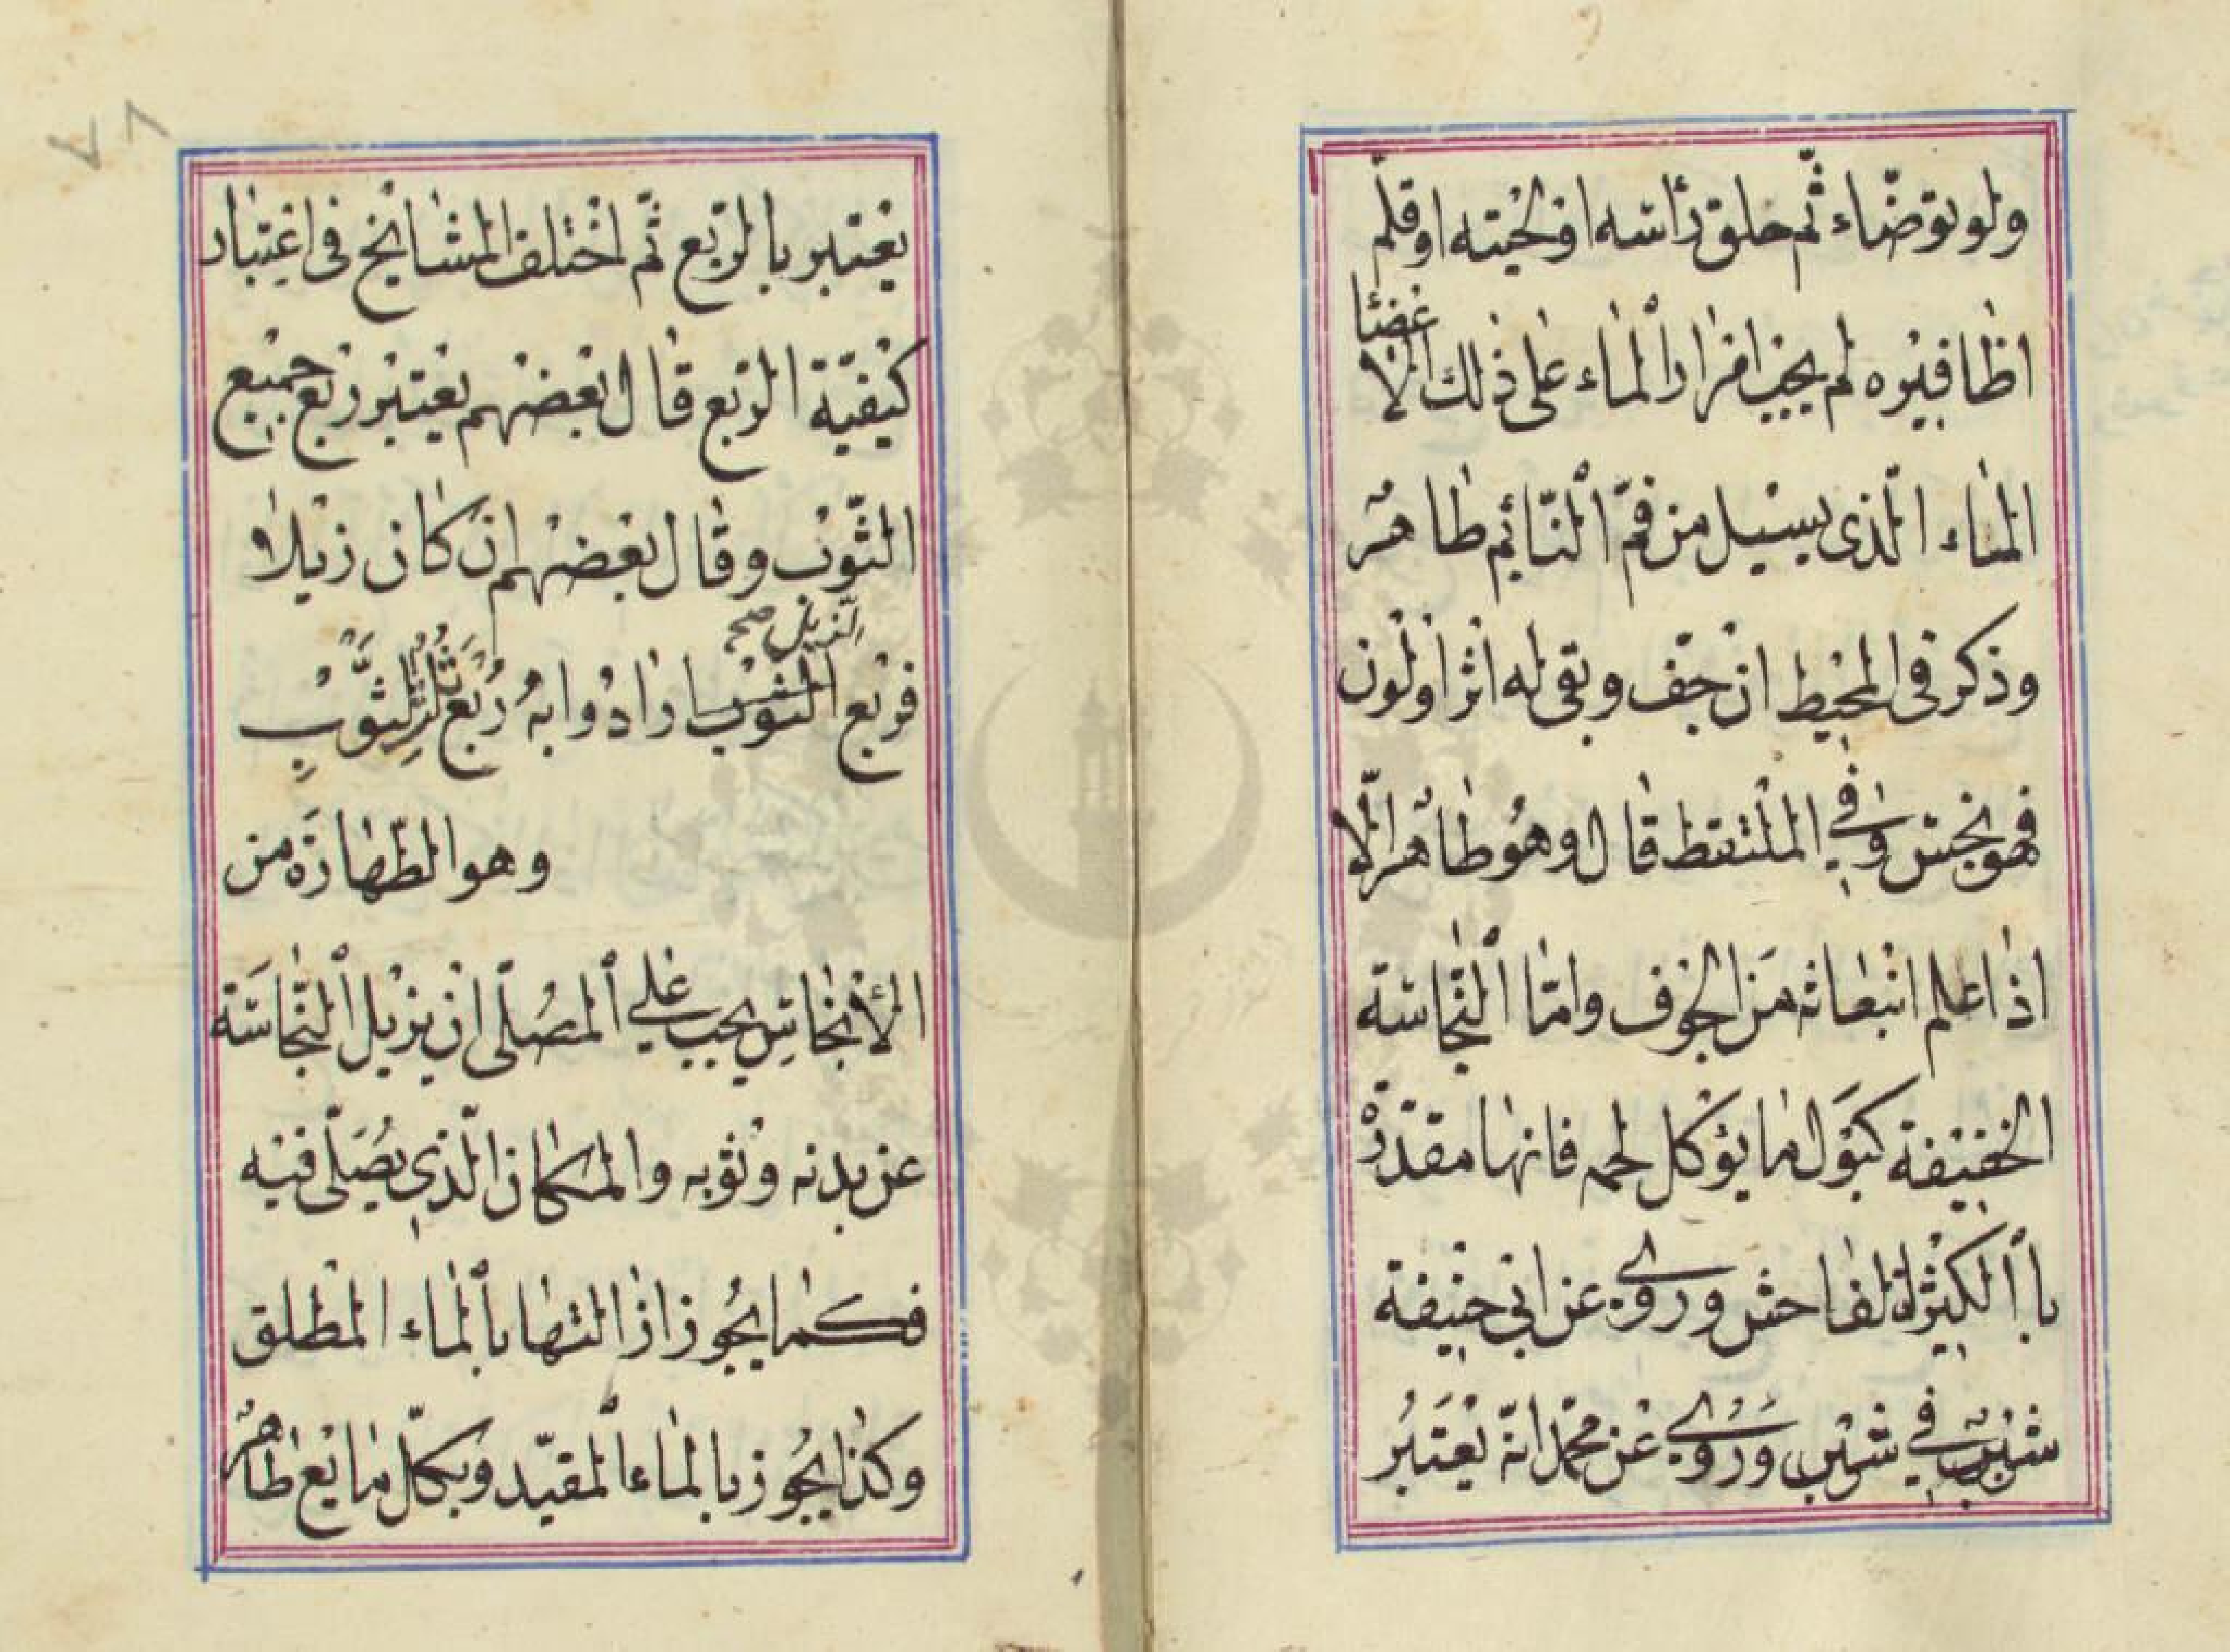 ولو توضّاء ثمّ حلق رأسه او لحيته او قلّم
اظافيره لم يجب امرار الماء على ذلك الا
عضئا
الماء الّذى يسيل من فمّ النّائم طاهر
وذكر فى المحيط ان جفّ وبقى له اثر او لون
فهو نجس وفي الملتقط قال وهو طاهر الّا
اذا علم انبعاثه من الجوف وامّا النّجاسة
الخفيفة كبول ما يؤكل لحمه فانها مقدّرة
باالكثرة الفاحش وروي عن ابى حنيفة
شبر في شبر وروي عن محمّد انّه يعتبر
يعتبر بالرّبع ثمّ اختلف المشايخ فى اعتبار
كيفيّة الربع قال بعضهم يعتبر ربع جميع
الثّوب وقال بعضهم ان كان ذيلا
الذيل صح
فربع الثوب ارادوا به ربع الثّوب
وهو الطّهارة من
الأنجاس يجب علي المصلّى ان يزيل النّجاسة
عن بدنه وثوبه والمكان الّذي يصلّى فيه
فكما يجوز ازالتها بالماء المطلق
وكذا يجوز بالماء المقيّد وبكلّ مايع طاهر